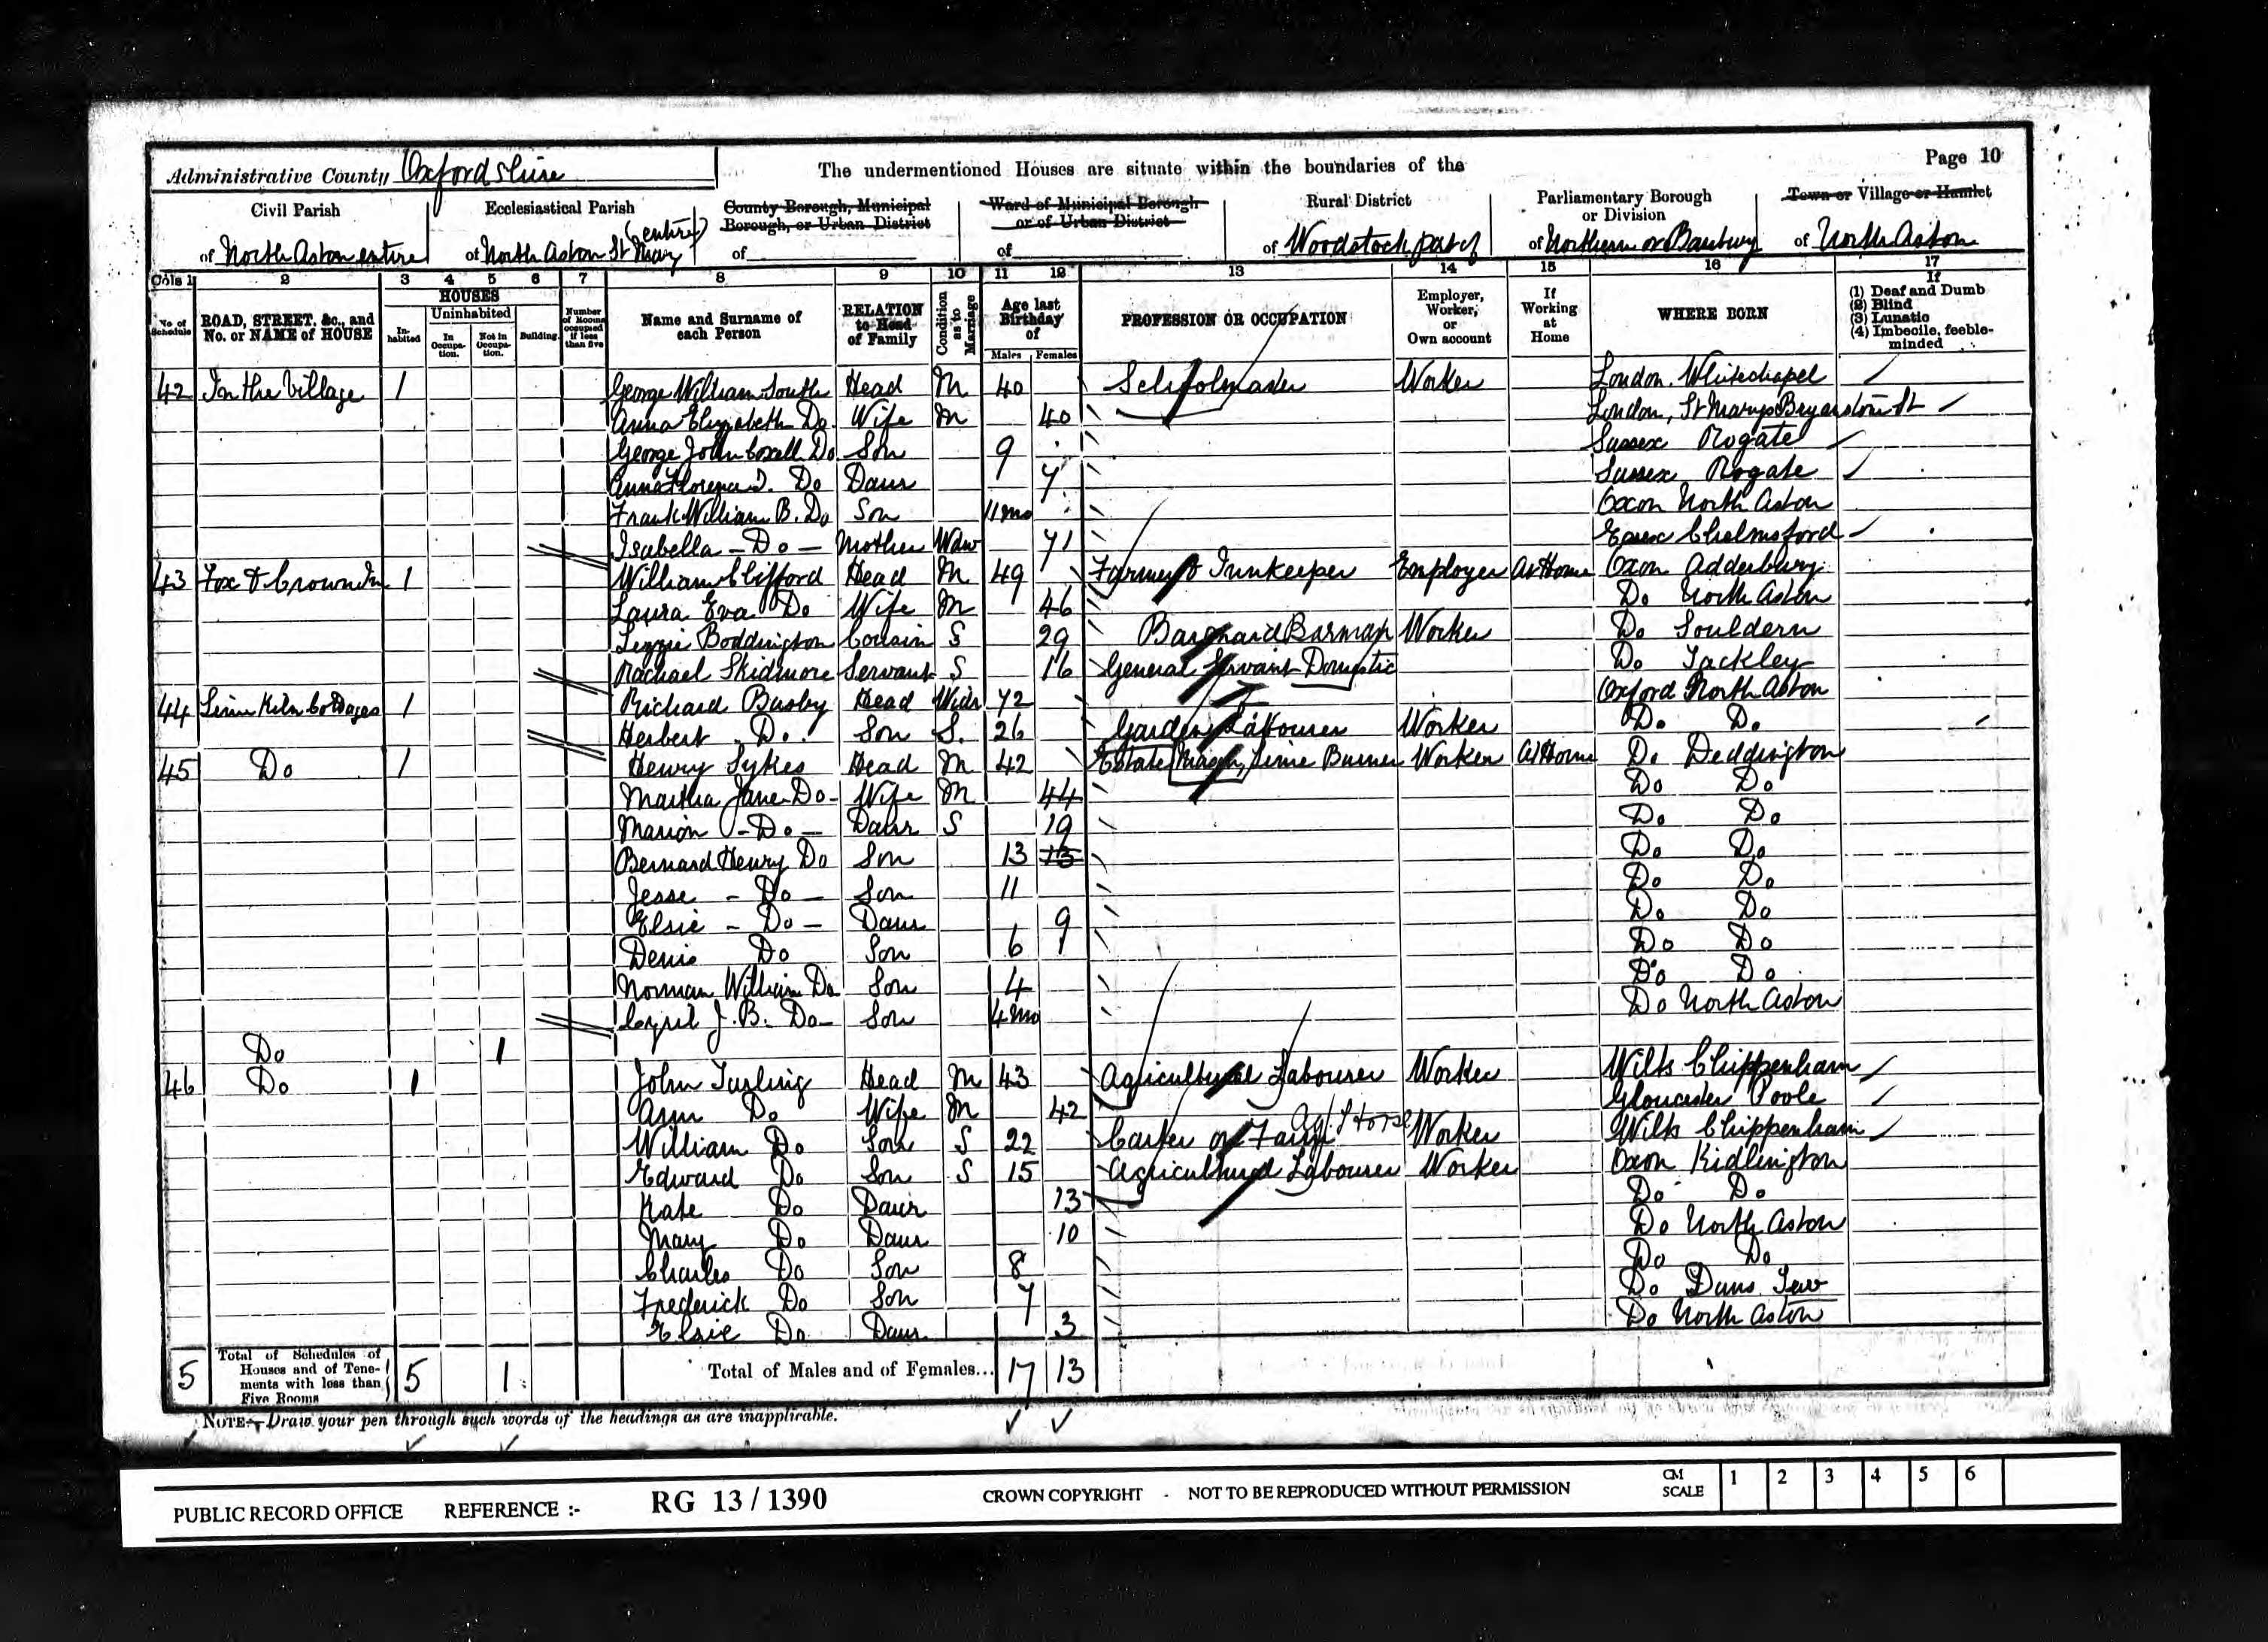 Page 10
Administrative County Oxfordshire
The undermentioned Houses are situate within the boundaries of the
Civil Parish
of North Aston entire
Ecclesiastical Parish
of North Aston St Mary (entire)
County Borough, Municipal Borough, or Urban District
of
Ward of Municipal Borough or of Urban District
of
Rural District
of Woodstock part of
Parliamentary Borough or Division
of Northern or Banbury
Town or Village or Hamlet
of North Aston
Cols 1 2 3 4 5 6 7 8 9 10 11 12 13 14 15 16 17
No. of Schedule
ROAD, STREET, &c., and No. or NAME of HOUSE
HOUSES
Inhabited
Uninhabited
In Occupation.
Not in Occupation.
Building.
Number of Rooms occupied if less than five
Name and Surname of each Person
RELATION to Head of Family
Condition as to Marriage
Age last Birthday of
Males Females
PROFESSION OR OCCUPATION
Employer, Worker, or Own account
If Working at Home
WHERE BORN
If
(1) Deaf and Dumb
(2) Blind
(3) Lunatic
(4) Imbecile, feeble-minded
42 In the Village 1 George William South Head M 40 Schoolmaster Worker London. Whitechapel
Anna Elizabeth Do Wife M 40 London, St Marys Bryanston St
George John Coxell Do Son 9 Sussex Rogate
Anna Florence I. Do Daur 7 Sussex Rogate
Frank William B. Do Son 11 mo Oxon North Aston
Isabella - Do - Mother Widw 71 Essex Chelmsford
43 Fox & Crown Inn 1 William Clifford Head M 49 Farmer & Innkeeper Employer At Home Oxon Adderbury
Laura Eva Do Wife M 46 Do North Aston
Lizzie Boddington Cousin S 29 Barmaid Barman Worker Do Souldern
Rachael Skidmore Servant S 16 General Servant Domestic Do Tackley
44 Lime Kiln Cottages 1 Richard Busby Head Widr 72 Oxford North Aston
Herbert Do. Son S. 26 Garden Labourer Worker Do Do
45 Do 1 Henry Sykes Head M 42 Estate Mason, Lime Burner Worker At Home Do Deddington
Martha Jane Do - Wife M 44 Do Do
Marion - Do - Daur S 19 Do Do
Bernard Henry Do Son 13 13 Do Do
Jesse - Do - Son 11 Do Do
Elsie - Do - Daur 9 Do Do
Denis Do Son 6 Do Do
Norman William Do Son 4 Do Do
Cyril J. B. Do - Son 4 mo Do North Aston
Do 1
46 Do 1 John Turling Head M 43 Agricultural Labourer Worker Wilts Chippenham
Ann Do Wife M 42 Gloucester Poole
William Do Son S 22 Carter on Farm Worker Wilts Chippenham
Edward Do Son S 15 Agricultural Labourer Worker Oxon Kidlington
Kate Do Daur 13 Do Do
Mary Do Daur 10 Do North Aston
Charles Do Son 8 Do Do
Frederick Do Son 7 Do Duns Tew
Elsie Do Daur 3 Do North Aston
5 Total of Schedules of Houses and of Tenements with less than Five Rooms 5 1 Total of Males and of Females... 17 13
NOTE—Draw your pen through such words of the headings as are inapplicable.
PUBLIC RECORD OFFICE REFERENCE :- RG 13 / 1390 CROWN COPYRIGHT - NOT TO BE REPRODUCED WITHOUT PERMISSION CM SCALE 1 2 3 4 5 6